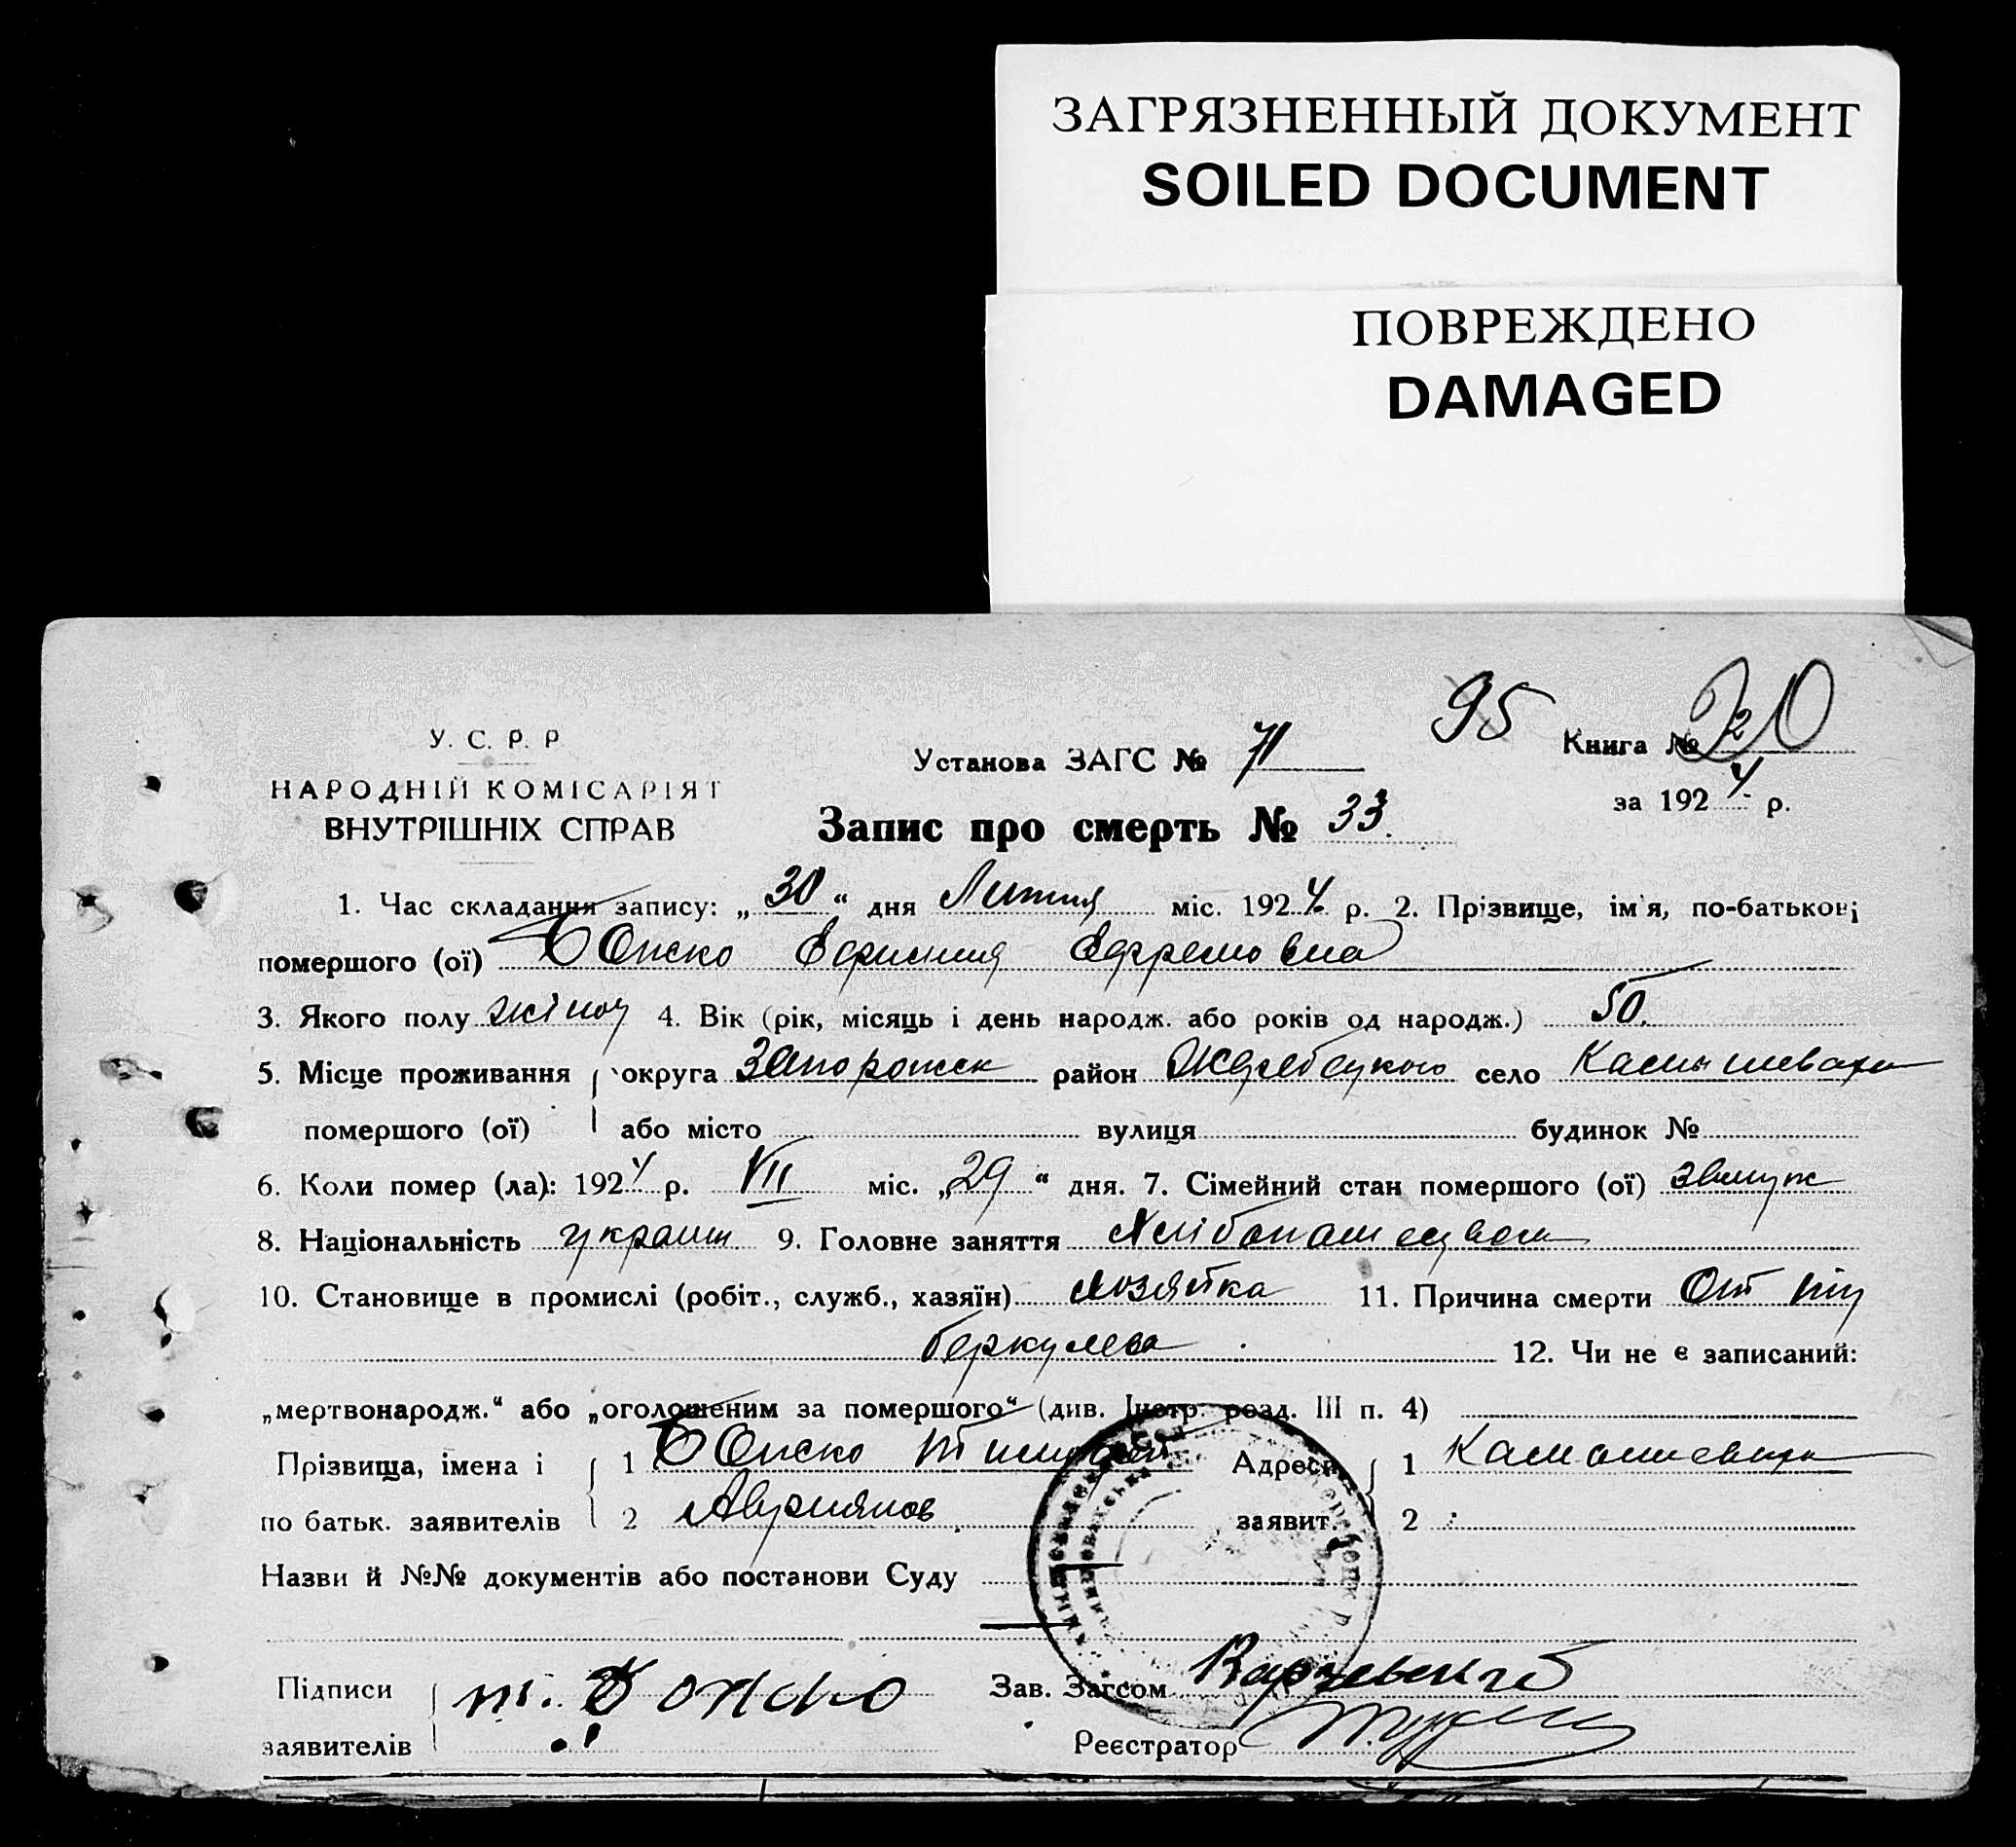 ЗАГРЯЗНЕННЫЙ ДОКУМЕНТ
SOILED DOCUMENT
ПОВРЕЖДЕНО
DAMAGED
95
У. С. Р. Р
НАРОДНІЙ КОМІСАРІЯТ
ВНУТРІШНІХ СПРАВ
Установа ЗАГС № 71
Книга № 20
за 1924 р.
Запис про смерть № 33.
1. Час складання запису: „30“ дня Липня міс. 1924 р. 2. Прізвище, ім'я, по-батькові
помершого (ої) Ефремовна
3. Якого полу жіноч 4. Вік (рік, місяць і день народж. або років од народж.) 50.
5. Місце проживання округа Запорожск район Жеребецкого село Камышеваха
помершого (ої) або місто вулиця будинок №
6. Коли помер (ла): 1924 р. VII міс. „29“ дня. 7. Сімейний стан помершого (ої) замуж
8. Національність україн 9. Головне заняття
10. Становище в промислі (робіт., служб., хазяїн) хозяйка 11. Причина смерти От ту
беркулеза 12. Чи не є записаний:
„мертвонародж.“ або „оголошеним за помершого“ (див. Інстр. розд. III п. 4)
Прізвища, імена і 1 Адреси 1
по батьк. заявителів 2 заявит. 2
Назви й №№ документів або постанови Суду
Підписи Зав. Загсом
заявителів Реєстратор